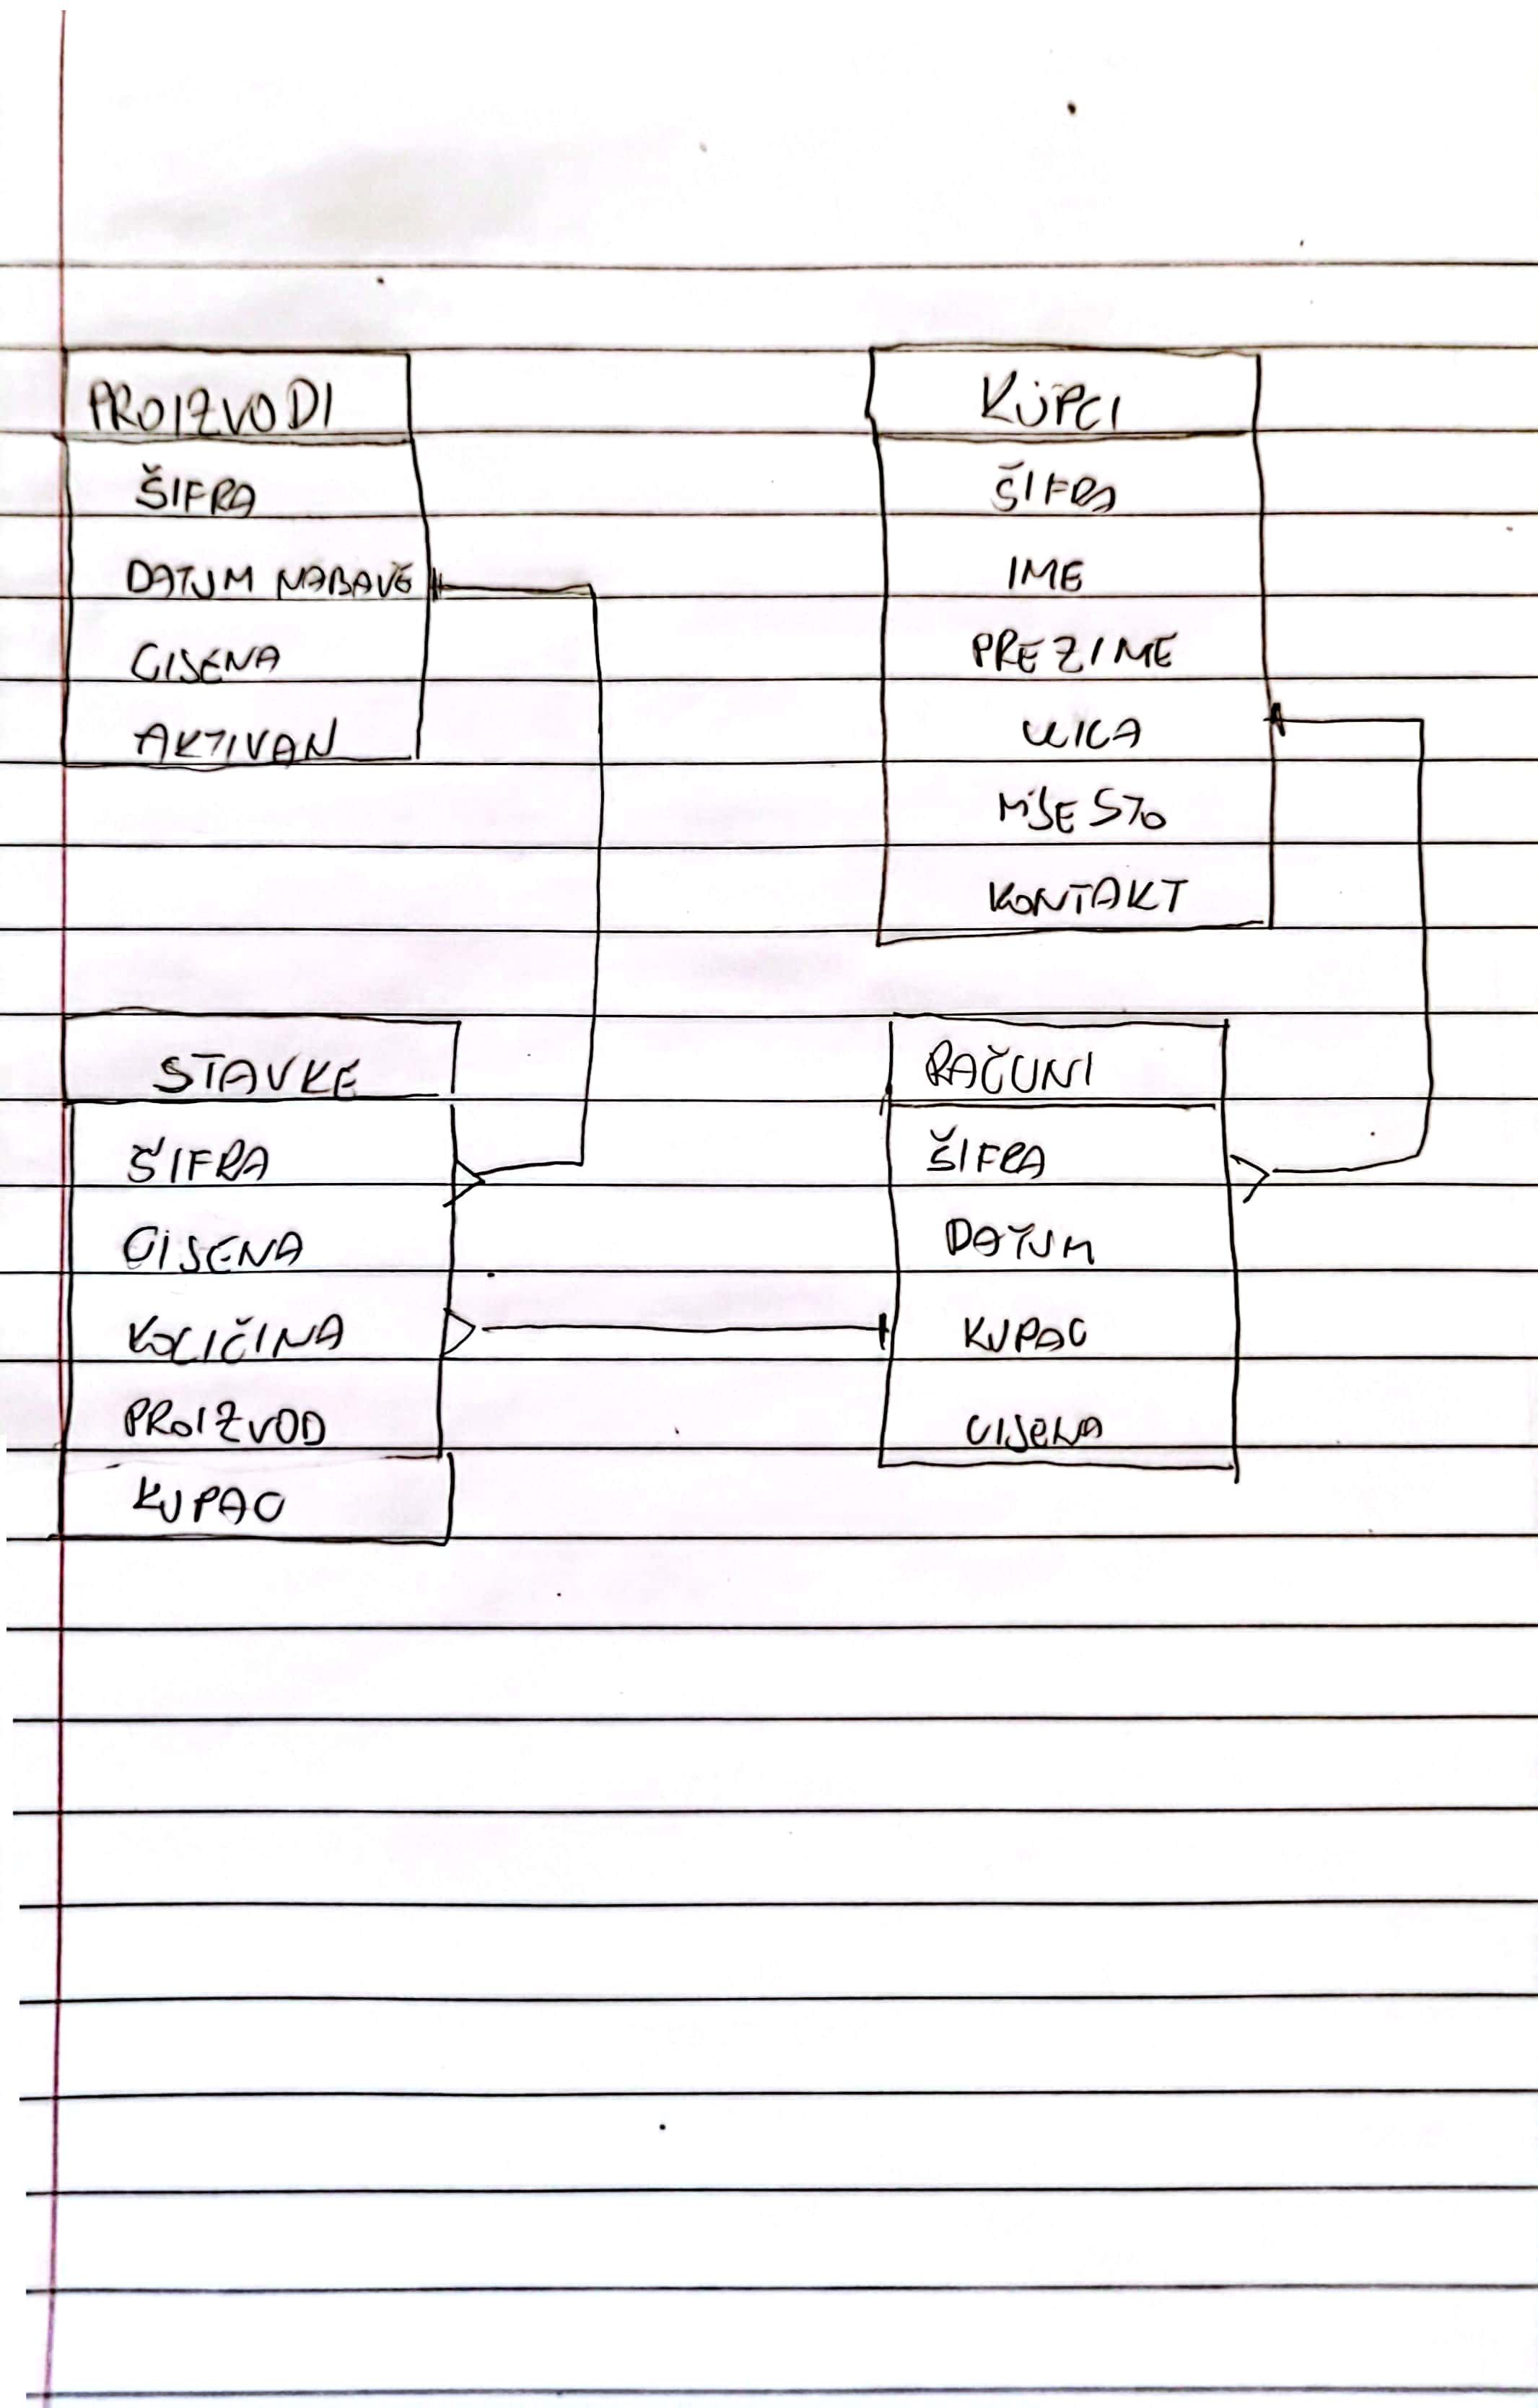 PROIZVODI
ŠIFRA
DATUM NABAVE
CIJENA
AKTIVAN
KUPCI
ŠIFRA
IME
PREZIME
ULICA
MJESTO
KONTAKT
STAVKE
ŠIFRA
CIJENA
KOLIČINA
PROIZVOD
KUPAC
RAČUNI
ŠIFRA
DATUM
KUPAC
CIJENA